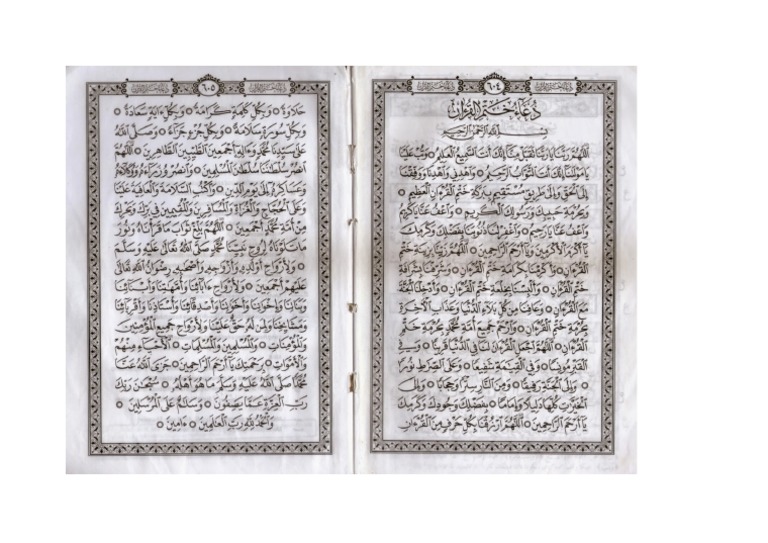 ٦٠٤
دُعَاءُ خَتْمِ الْقُرْآنِ
بِسْمِ اللَّهِ الرَّحْمَنِ الرَّحِيمِ
اَللّٰهُمَّ رَبَّنَا يَا رَبَّنَا تَقَبَّلْ مِنَّا إِنَّكَ أَنْتَ السَّمِيعُ الْعَلِيمُ ○ وَتُبْ عَلَيْنَا
يَا مَوْلَانَا إِنَّكَ أَنْتَ التَّوَّابُ الرَّحِيمُ ○ وَاهْدِنَا وَوَفِّقْنَا
إِلَى الْحَقِّ وَإِلَى طَرِيقٍ مُسْتَقِيمٍ بِبَرَكَةِ خَتْمِ الْقُرْآنِ الْعَظِيمِ ○
وَبِحُرْمَةِ حَبِيبِكَ وَرَسُولِكَ الْكَرِيمِ ○ وَاعْفُ عَنَّا يَا كَرِيمُ
وَاعْفُ عَنَّا يَا رَحِيمُ ○ وَاغْفِرْ لَنَا ذُنُوبَنَا بِفَضْلِكَ وَكَرَمِكَ
يَا أَكْرَمَ الْأَكْرَمِينَ وَيَا أَرْحَمَ الرَّاحِمِينَ ○ اَللّٰهُمَّ زَيِّنَّا بِزِينَةِ خَتْمِ
الْقُرْآنِ ○ وَأَكْرِمْنَا بِكَرَامَةِ خَتْمِ الْقُرْآنِ ○ وَشَرِّفْنَا بِشَرَافَةِ
خَتْمِ الْقُرْآنِ ○ وَأَلْبِسْنَا بِخِلْعَةِ خَتْمِ الْقُرْآنِ ○ وَأَدْخِلْنَا الْجَنَّةَ
مَعَ الْقُرْآنِ ○ وَعَافِنَا مِنْ كُلِّ بَلَاءِ الدُّنْيَا وَعَذَابِ الْآخِرَةِ
بِحُرْمَةِ خَتْمِ الْقُرْآنِ ○ وَارْحَمْ جَمِيعَ أُمَّةِ مُحَمَّدٍ بِحُرْمَةِ خَتْمِ
الْقُرْآنِ ○ اَللّٰهُمَّ اجْعَلِ الْقُرْآنَ لَنَا فِي الدُّنْيَا قَرِينًا ○ وَفِي
الْقَبْرِ مُونِسًا ○ وَفِي الْقِيَامَةِ شَفِيعًا ○ وَعَلَى الصِّرَاطِ نُورًا
○ وَإِلَى الْجَنَّةِ رَفِيقًا ○ وَمِنَ النَّارِ سِتْرًا وَحِجَابًا ○ وَإِلَى
الْخَيْرَاتِ كُلِّهَا دَلِيلًا وَإِمَامًا ○ بِفَضْلِكَ وَجُودِكَ وَكَرَمِكَ
يَا أَرْحَمَ الرَّاحِمِينَ ○ اَللّٰهُمَّ ارْزُقْنَا بِكُلِّ حَرْفٍ مِنَ الْقُرْآنِ
٦٠٥
حَلَاوَةً ○ وَبِكُلِّ كَلِمَةٍ كَرَامَةً ○ وَبِكُلِّ آيَةٍ سَعَادَةً ○
وَبِكُلِّ سُورَةٍ سَلَامَةً ○ وَبِكُلِّ جُزْءٍ جَزَاءً ○ وَصَلَّى اللهُ
عَلَى سَيِّدِنَا مُحَمَّدٍ وَآلِهِ أَجْمَعِينَ الطَّيِّبِينَ الطَّاهِرِينَ ○ اَللّٰهُمَّ
انْصُرْ سُلْطَانَنَا سُلْطَانَ الْمُسْلِمِينَ ○ وَانْصُرْ وُزَرَاءَهُ وَوُكَلَاءَهُ
وَعَسَاكِرَهُ إِلَى يَوْمِ الدِّينِ ○ وَاكْتُبِ السَّلَامَةَ وَالْعَافِيَةَ عَلَيْنَا
وَعَلَى الْحُجَّاجِ وَالْغُزَاةِ وَالْمُسَافِرِينَ وَالْمُقِيمِينَ فِي بَرِّكَ وَبَحْرِكَ
مِنْ أُمَّةِ مُحَمَّدٍ أَجْمَعِينَ ○ اَللّٰهُمَّ بَلِّغْ ثَوَابَ مَا قَرَأْنَاهُ ○ وَنُورَ
مَا تَلَوْنَاهُ لِرُوحِ نَبِيِّنَا مُحَمَّدٍ صَلَّى اللهُ تَعَالَى عَلَيْهِ وَسَلَّمَ
○ وَلِأَرْوَاحِ أَوْلَادِهِ وَأَزْوَاجِهِ وَأَصْحَابِهِ رِضْوَانُ اللهِ تَعَالَى
عَلَيْهِمْ أَجْمَعِينَ ○ وَلِأَرْوَاحِ آبَائِنَا وَأُمَّهَاتِنَا وَأَبْنَائِنَا
وَبَنَاتِنَا وَإِخْوَانِنَا وَأَخَوَاتِنَا وَأَصْدِقَائِنَا وَأُسْتَاذِنَا وَأَقْرِبَائِنَا
وَمَشَايِخِنَا وَلِمَنْ لَهُ حَقٌّ عَلَيْنَا وَلِأَرْوَاحِ جَمِيعِ الْمُؤْمِنِينَ
وَالْمُؤْمِنَاتِ ○ وَالْمُسْلِمِينَ وَالْمُسْلِمَاتِ ○ الْأَحْيَاءِ مِنْهُمْ
وَالْأَمْوَاتِ ○ بِرَحْمَتِكَ يَا أَرْحَمَ الرَّاحِمِينَ ○ جَزَى اللهُ عَنَّا
مُحَمَّدًا صَلَّى اللهُ عَلَيْهِ وَسَلَّمَ مَا هُوَ أَهْلُهُ ○ سُبْحَانَ رَبِّكَ
رَبِّ الْعِزَّةِ عَمَّا يَصِفُونَ ○ وَسَلَامٌ عَلَى الْمُرْسَلِينَ ○
وَالْحَمْدُ لِلّٰهِ رَبِّ الْعَالَمِينَ ○ آمِينَ ○